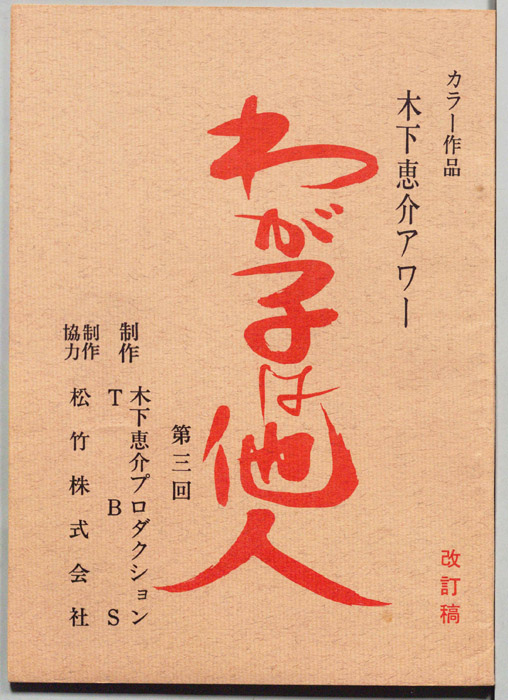 カラー作品
木下恵介アワー
わが子は他人
第三回
改訂稿
制作
木下恵介プロダクション
TBS
制作協力
松竹株式会社